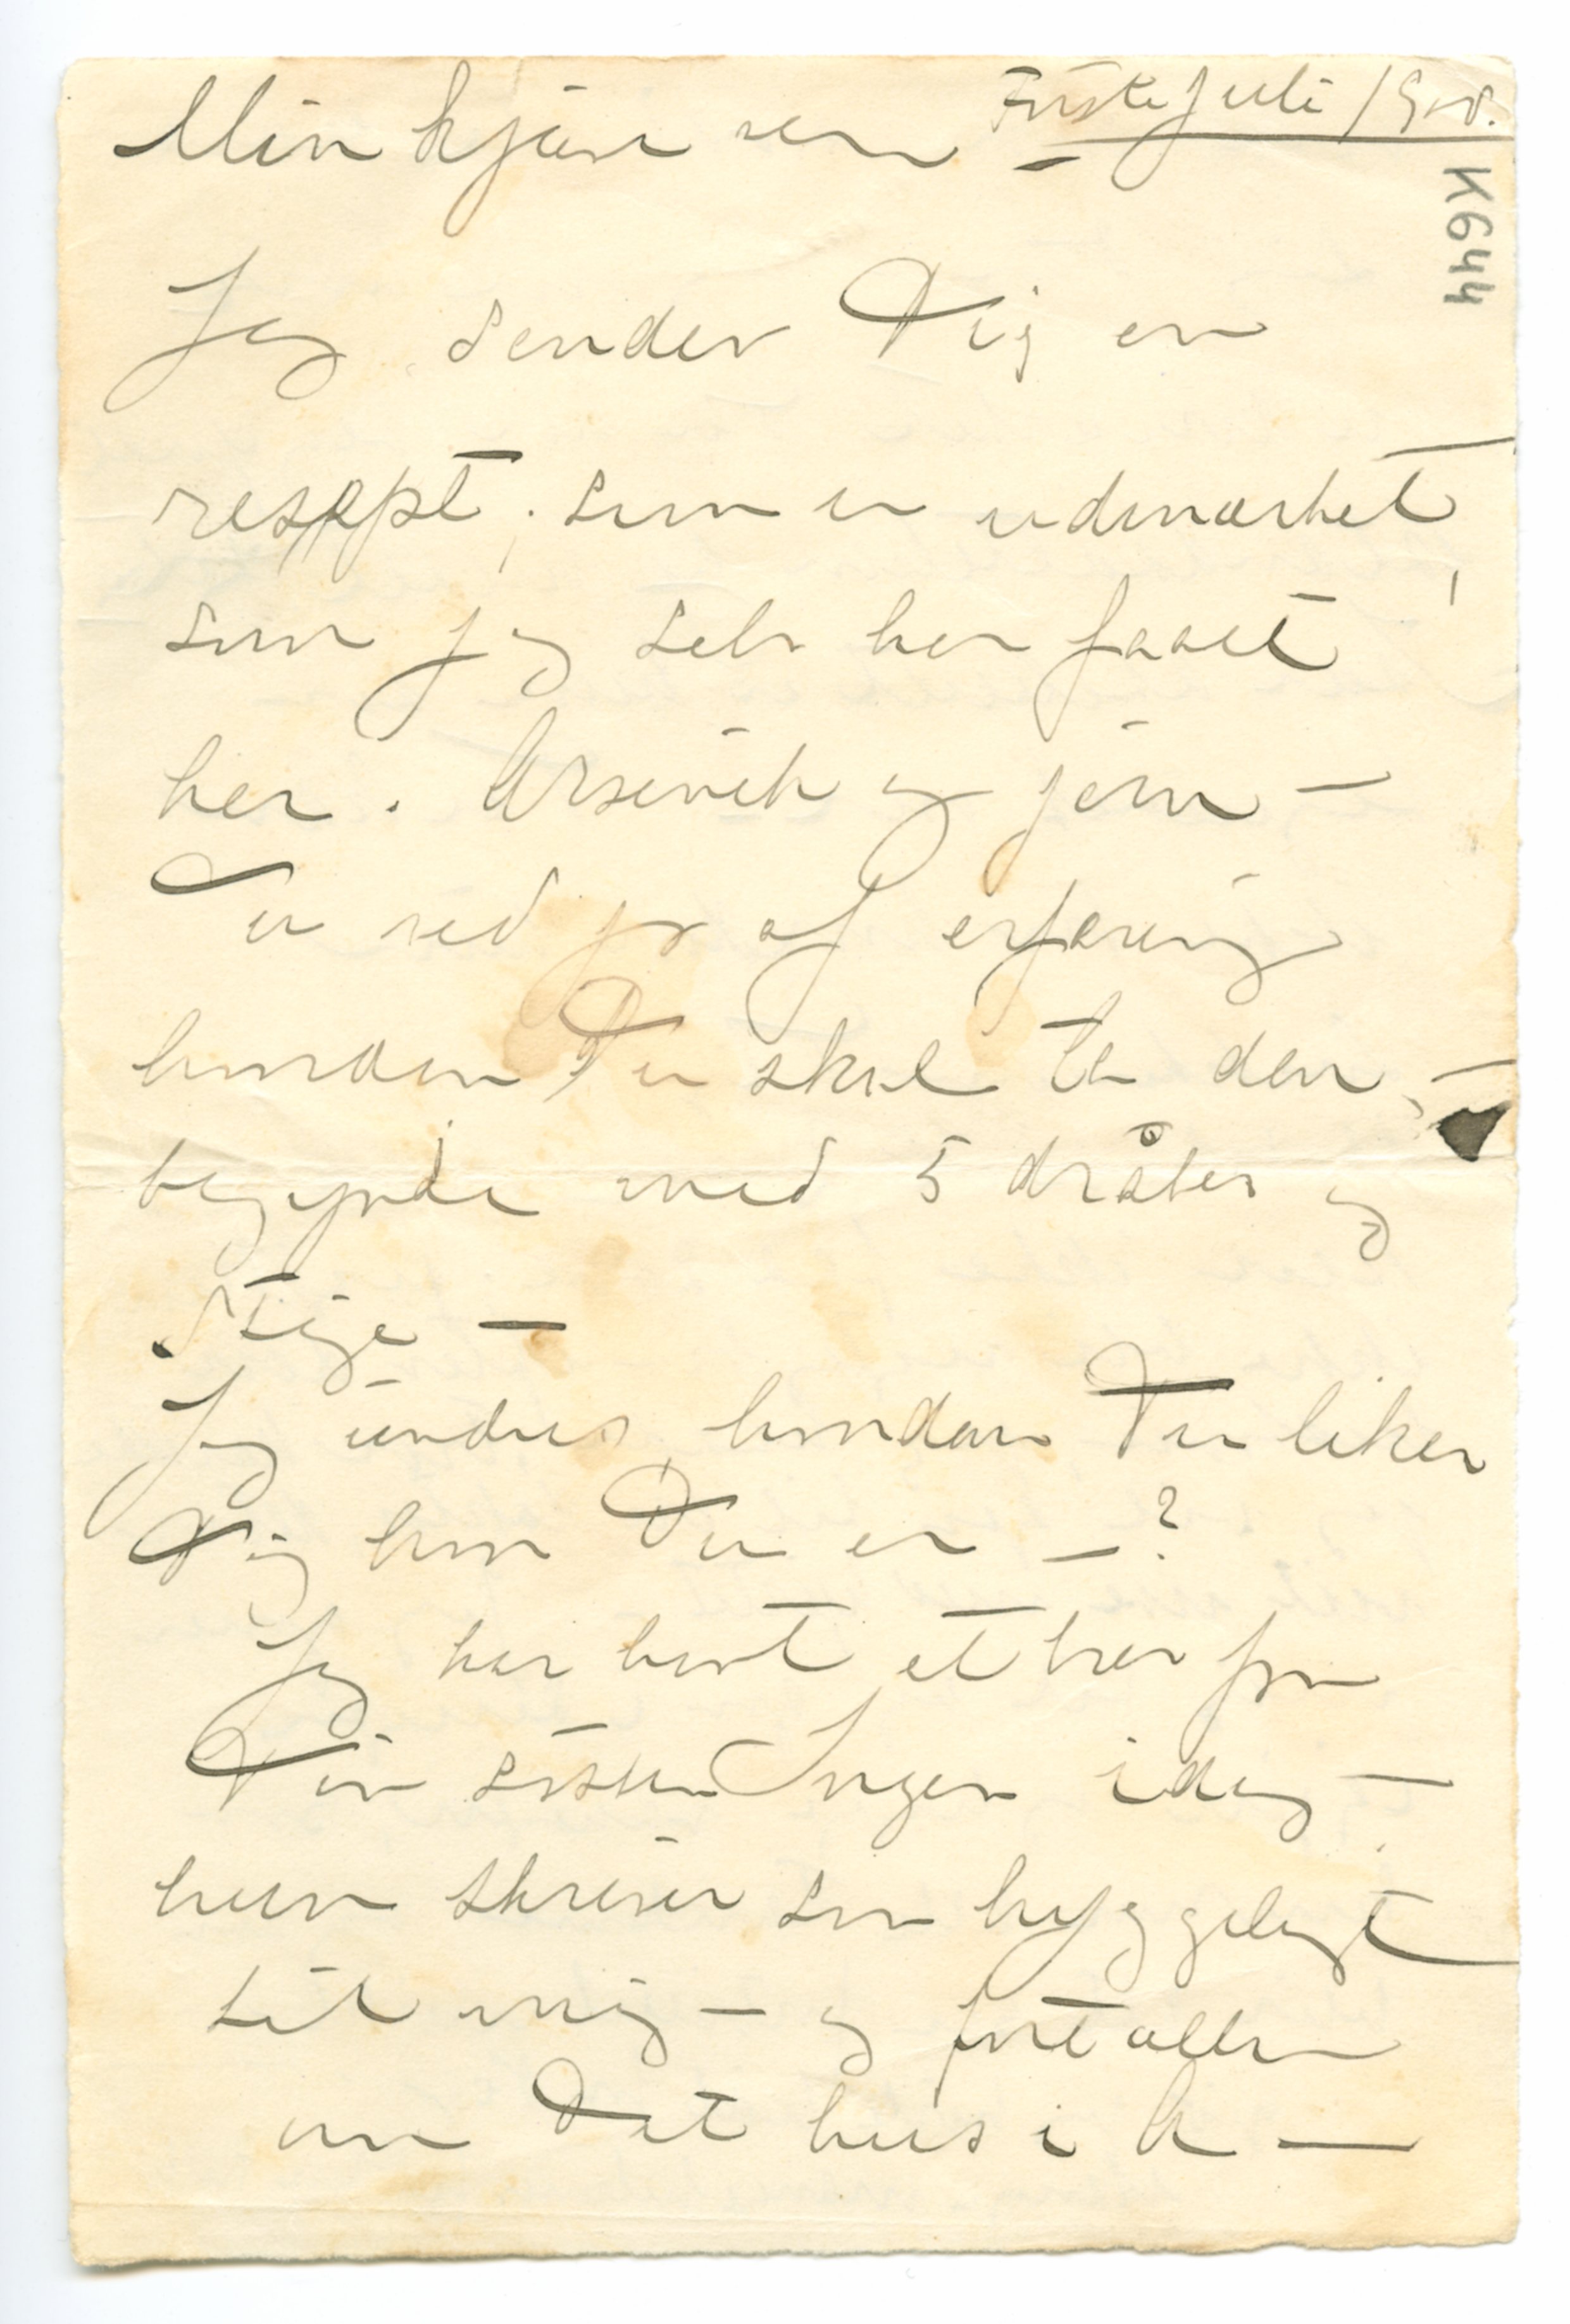 Første Juli 1908.
Min kjære ven –
K644
Jeg sender Dig en
resept, som er udmærket
som jeg selv her faaet
her. Arsenik og jern –
Du ved jo af erfaring
hvordan Du skal ta den, –
begynde med 5 dråber og
stige –
Jeg undres hvordan Du liker
Dig hvor Du er – ?
Jeg har havt et brev fra
Din søster Inger idag –
hun skriver saa hyggeligt
til mig – og fortæller
om Dit hus i K –